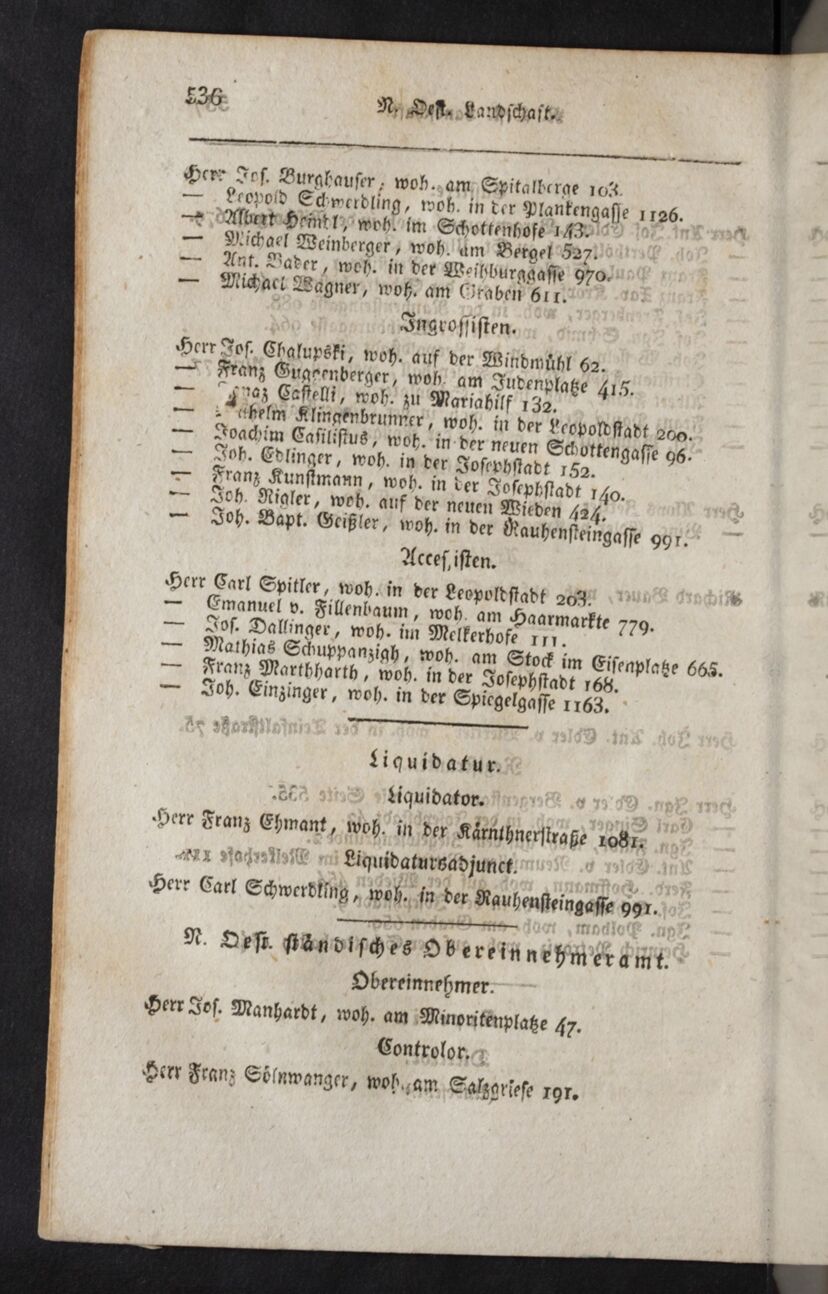 536
N. Oest. Landschaft.
Herr Jos. Burghauser, woh. am Spitalberge 103.
— Leopold Schwerdling, woh. in der Plankengasse 1126.
— Albert Heindl, woh. im Schottenhofe 143.
— Michael Weinberger, woh. am Bergel 527.
— Ant. Bader, woh. in der Weihburggasse 970.
— Michael Wagner, woh. am Graben 611.
Ingrossisten.
Herr Jos. Chalupski, woh. auf der Windmühl 62.
— Franz Guggenberger, woh. am Judenplatze 415.
— Ignaz Castelli, woh. zu Mariahilf 132.
— Wilhelm Klingenbrunner, woh. in der Leopoldstadt 200.
— Joachim Casilistus, woh. in der neuen Schottengasse 96.
— Joh. Edlinger, woh. in der Josephstadt 152.
— Franz Kunstmann, woh. in der Josephstadt 140.
— Joh. Rigler, woh. auf der neuen Wieden 424.
— Joh. Bapt. Geißler, woh. in der Rauhensteingasse 991.
Accessisten.
Herr Carl Spitler, woh. in der Leopoldstadt 203.
— Emanuel v. Fillenbaum, woh. am Haarmarkte 779.
— Jos. Dallinger, woh. im Melkerhofe 111.
— Mathias Schuppanzigh, woh. am Stock im Eisenplatze 665.
— Franz Marthharth, woh. in der Josephstadt 168.
— Joh. Einzinger, woh. in der Spiegelgasse 1163.
Liquidatur.
Liquidator.
Herr Franz Ehmant, woh. in der Kärnthnerstraße 1081.
Liquidatursadjunct.
Herr Carl Schwerdling, woh. in der Rauhensteingasse 991.
N. Oest. ständisches Obereinnehmeramt.
Obereinnehmer.
Herr Jos. Manhardt, woh. am Minoritenplatze 47.
Controlor.
Herr Franz Sölnwanger, woh. am Salzgriese 191.